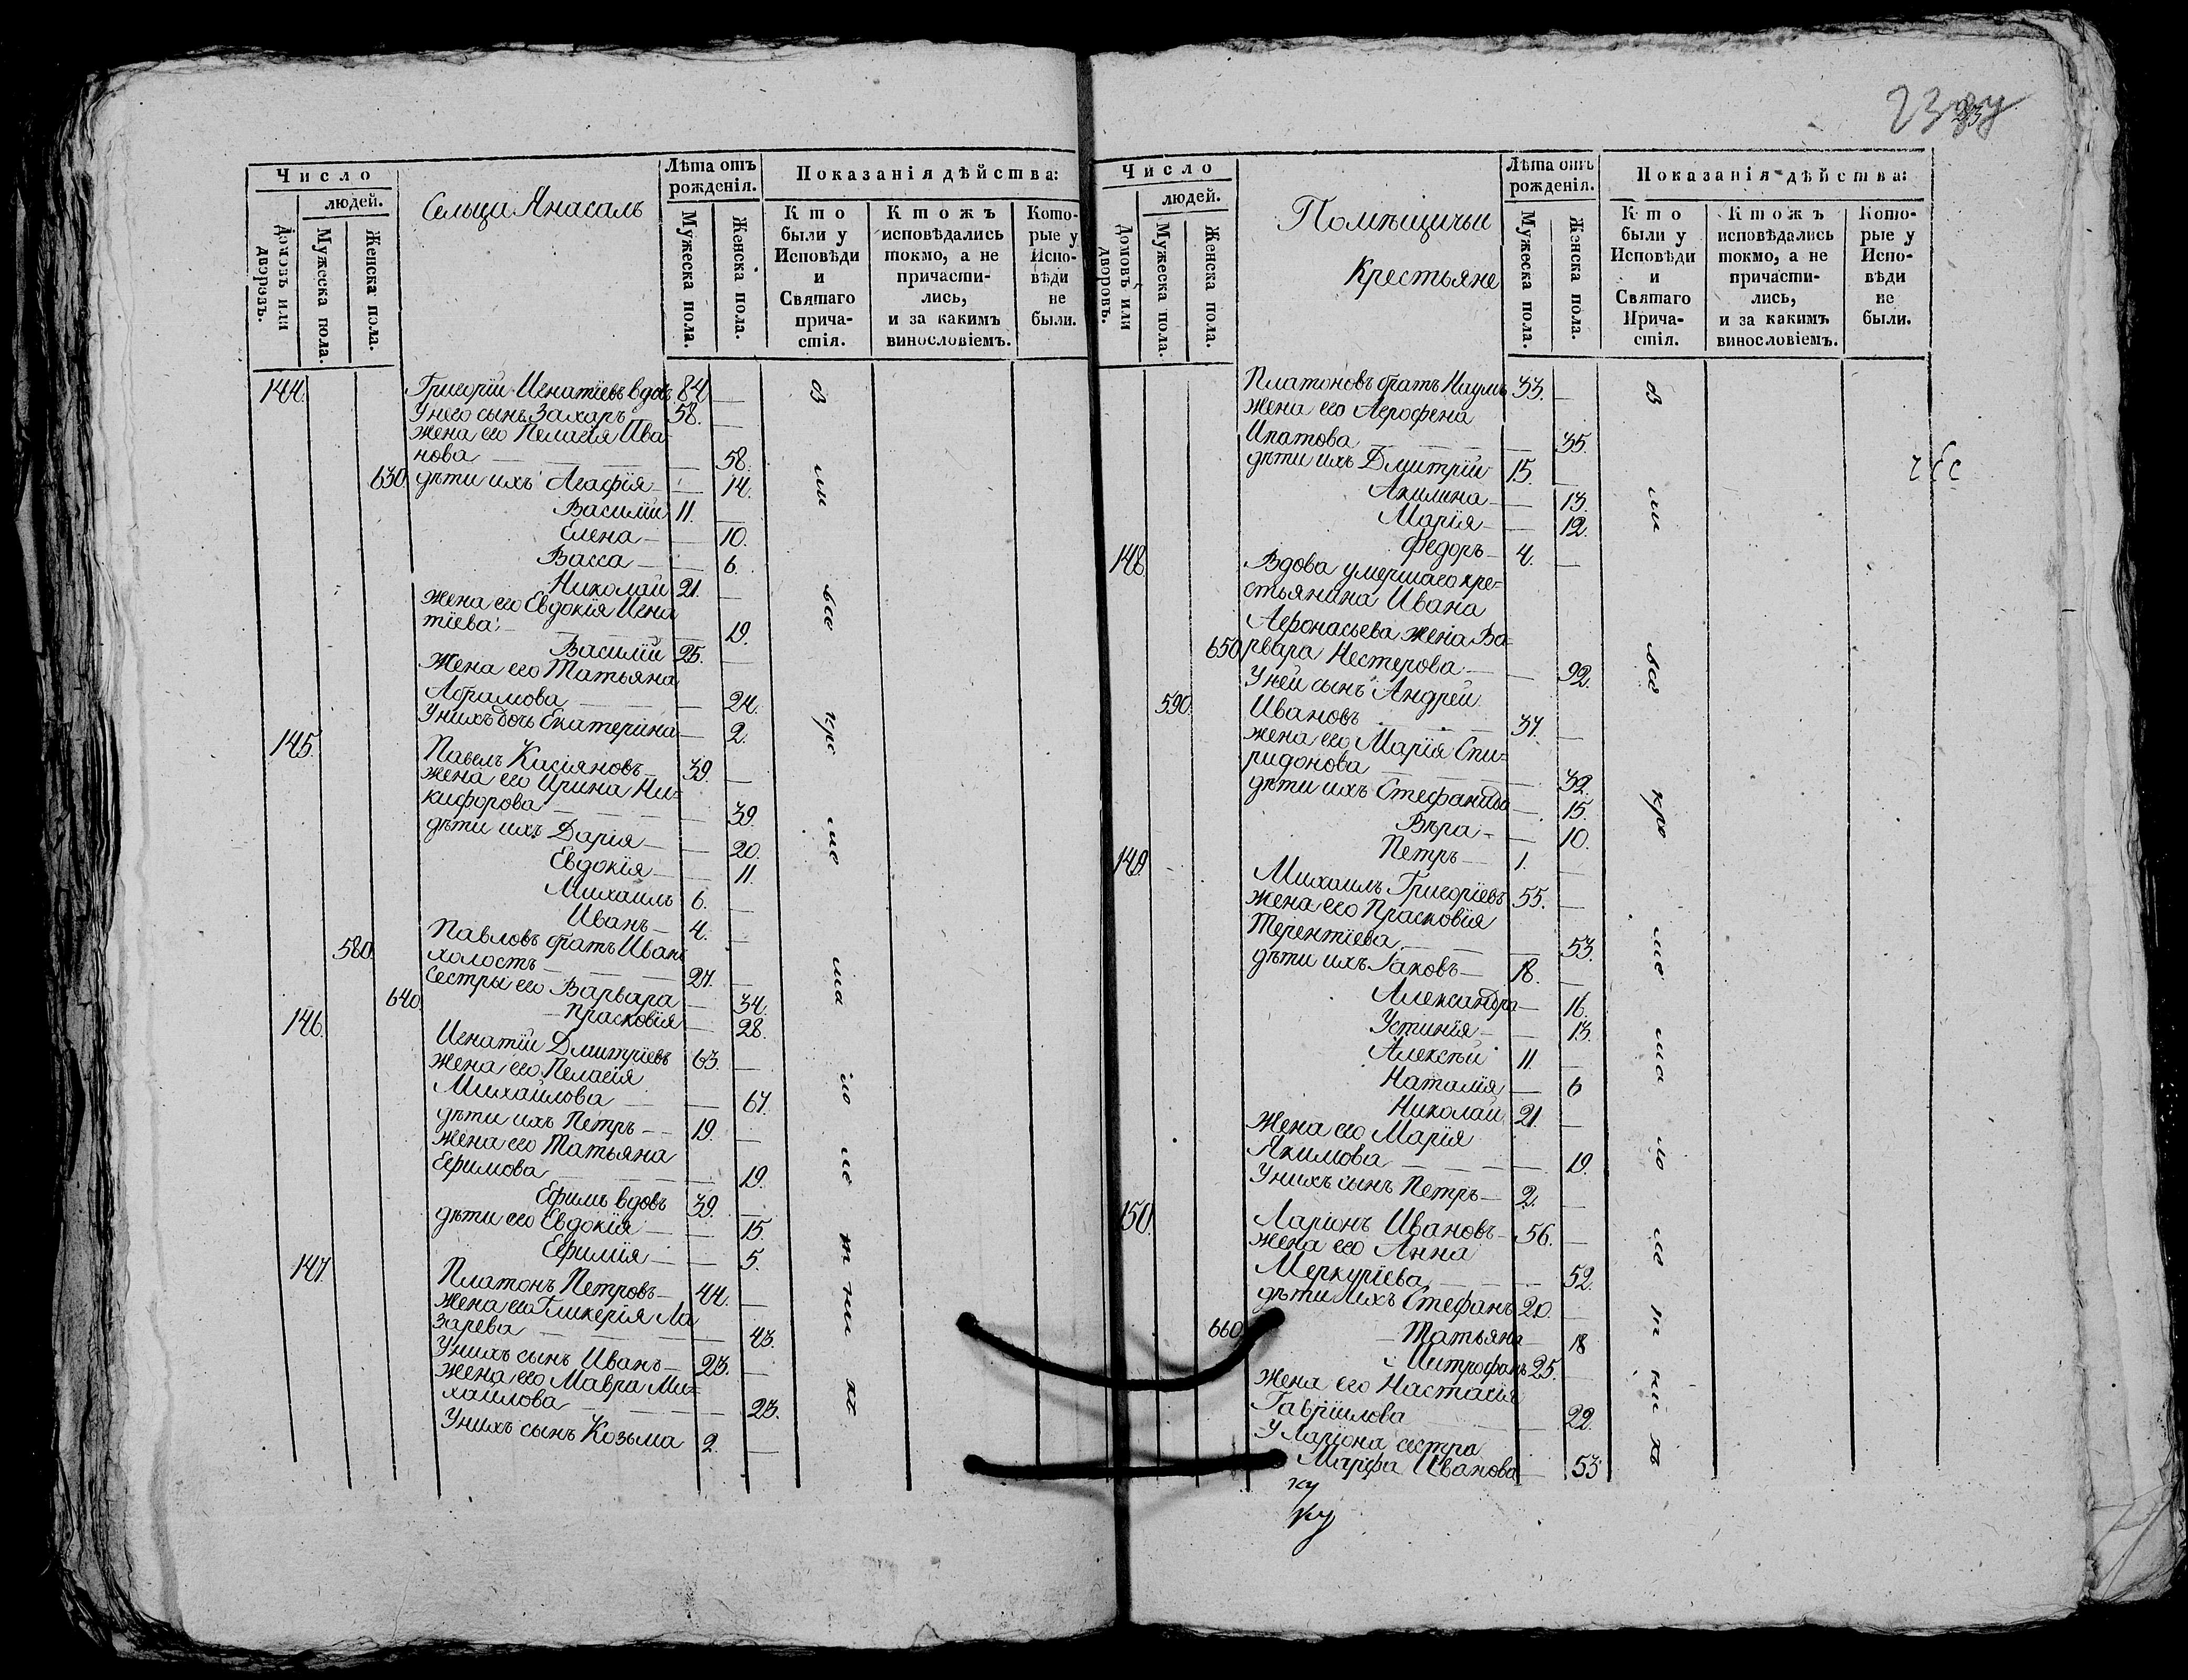 Число
людей.
Домовъ или дворовъ.
Мужеска пола.
Женска пола.
Сельца Янасалъ
Лѣта отъ рожденія.
Мужеска пола.
Женска пола.
Показанія дѣйства:
Кто были у Исповѣди и Святаго причастія.
Ктожъ исповѣдались токмо, а не причастились, и за какимъ винословіемъ.
Которые у Исповѣди не были.
144. Григорій Игнатіевъ вдовъ 84
У него сынъ Захаръ 58.
жена его Пелагія Ива-
нова 58.
630 дѣти ихъ Агафія 14.
Василій 11.
Елена 10.
Васса 6.
Николай 21.
жена его Евдокія Игна
тіева 19.
Василій 25.
Жена его Татьяна
Абрамова 24.
У нихъ дочь Екатерина 2.
145. Павелъ Касіяновъ 39.
жена его Ирина Ни-
кифорова 39.
дѣти ихъ Дарія 20.
Евдокія 11.
Михаилъ 6.
Иванъ 4.
Павловъ братъ Иванъ
580 холостъ 27.
Сестры его Варвара 34.
640 Прасковія 28.
146. Игнатій Дмитріевъ 63.
жена его Пелагія
Михайлова 67.
дѣти ихъ Петръ 19.
жена его Татьяна
Ефимова 19.
Ефимъ вдовъ 39.
дѣти его Евдокія 15.
Ефимія 5.
147. Платонъ Петровъ 44.
жена его Гликерія Ла
зарева 43.
У нихъ сынъ Иванъ 23.
жена его Мавра Ми-
хайлова 23.
У нихъ сынъ Козьма 2.
23
Число
людей.
Домовъ или дворовъ.
Мужеска пола.
Женска пола.
Помѣщичьи
Крестьяне
Лѣта отъ рожденія.
Мужеска пола.
Женска пола.
Показанія дѣйства:
Кто были у Исповѣди и Святаго Причастія.
Ктожъ исповѣдались токмо, а не причастились, и за какимъ винословіемъ.
Которые у Исповѣди не были.
Платоновъ братъ Наумъ 33.
жена его Агрофена
Ипатова 35.
дѣти ихъ Дмитрій 15.
Акилина 13.
Марія 12.
Федоръ 4.
148. Вдова умершаго кре-
стьянина Ивана
Афонасьева жена Ва-
650 рвара Нестерова 92.
У ней сынъ Андрей
590. Ивановъ 37.
жена его Марія Спи-
ридонова 32.
дѣти ихъ Стефанида 15.
Вѣра 10.
Петръ 1.
149. Михаилъ Григоріевъ 55.
жена его Прасковія
Терентіева 53.
дѣти ихъ Іаковъ 18.
Александра 16.
Устинія 13.
Алексѣй 11.
Наталія 6
Николай 21.
Жена его Марія
Якимова 19.
У нихъ сынъ Петръ 2.
150. Ларіонъ Ивановъ 56.
жена его Анна
Меркуріева 52.
дѣти ихъ Стефанъ 20.
660. Татьяна 18
Митрофанъ 25.
жена его Настасія
Гавріилова 22.
У Ларіона сестра
Марфа Иванова 53